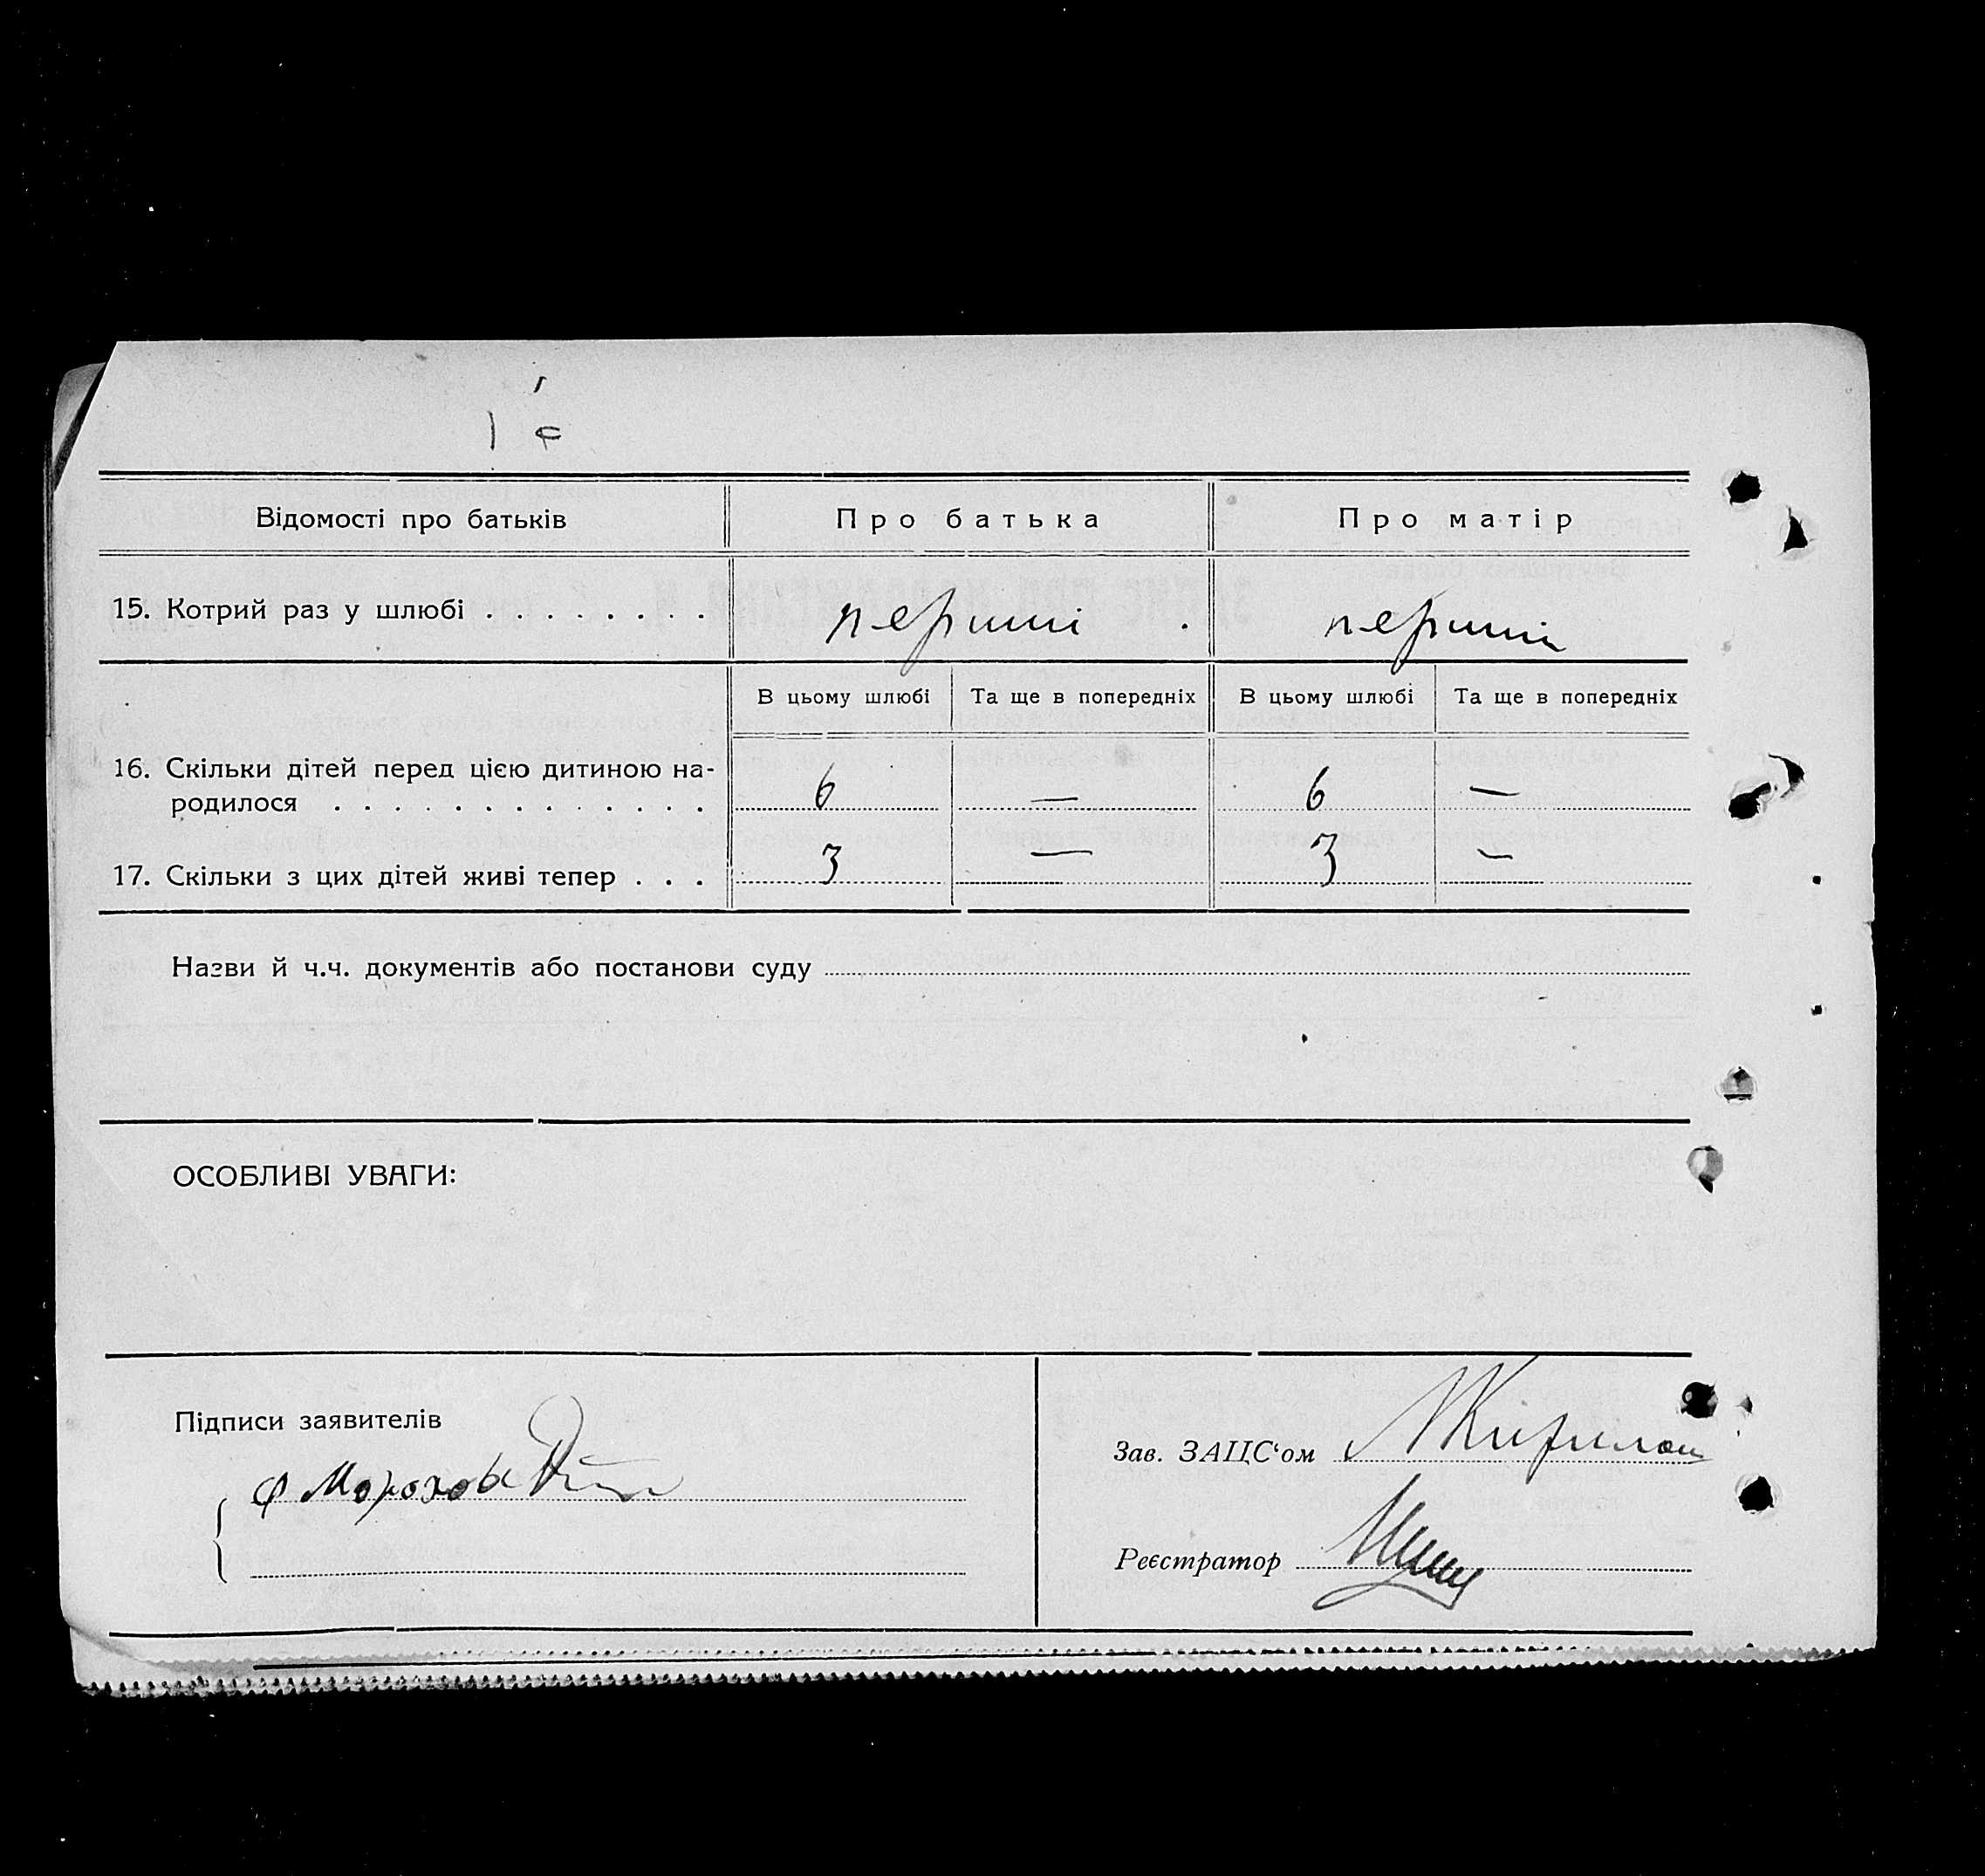 Відомості про батьків
Про батька
Про матір
15. Котрий раз у шлюбі . . . . . . . .
перший
перший
В цьому шлюбі
Та ще в попередніх
В цьому шлюбі
Та ще в попередніх
16. Скільки дітей перед цією дитиною на-
родилося . . . . . . . . . . . . .
6
—
6
—
17. Скільки з цих дітей живі тепер . . .
3
—
3
—
Назви й ч.ч. документів або постанови суду
ОСОБЛИВІ УВАГИ:
Підписи заявителів
Зав. ЗАЦС‘ом
Реєстратор